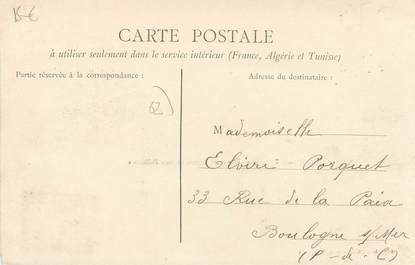 15€
CARTE POSTALE
à utiliser seulement dans le service intérieur (France, Algérie et Tunisie)
Partie réservée à la correspondance :
Adresse du destinataire :
62
Mademoiselle
Elvire Porquet
33 Rue de la Paix
Boulogne s/Mer
(P-de-C)